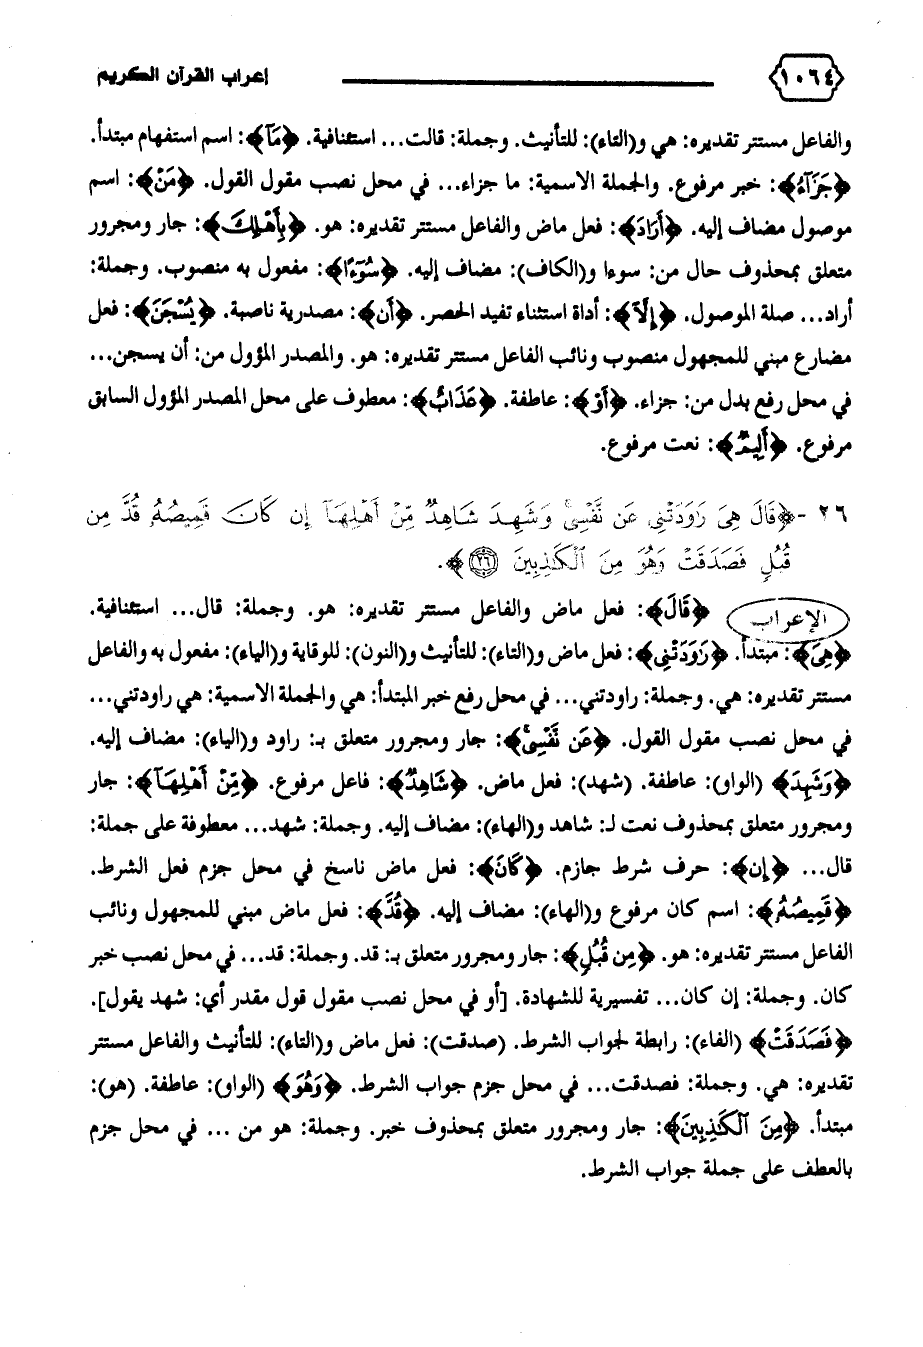 ١٠٦٤ إعراب القرآن الكريم
والفاعل مستتر تقديره: هي و(التاء): للتأنيث. وجملة: قالت... استئنافية. ﴿مَا﴾: اسم استفهام مبتدأ.
﴿جَزَآءُ﴾: خبر مرفوع. والجملة الاسمية: ما جزاء... في محل نصب مقول القول. ﴿مَنْ﴾: اسم
موصول مضاف إليه. ﴿أَرَادَ﴾: فعل ماض والفاعل مستتر تقديره: هو. ﴿بِأَهْلِكَ﴾: جار ومجرور
متعلق بمحذوف حال من: سوءا و(الكاف): مضاف إليه. ﴿سُوٓءًا﴾: مفعول به منصوب. وجملة:
أراد... صلة الموصول. ﴿إِلَّآ﴾: أداة استثناء تفيد الحصر. ﴿أَن﴾: مصدرية ناصبة. ﴿يُسْجَنَ﴾: فعل
مضارع مبني للمجهول منصوب ونائب الفاعل مستتر تقديره: هو. والمصدر المؤول من: أن يسجن...
في محل رفع بدل من: جزاء. ﴿أَوْ﴾: عاطفة. ﴿عَذَابٌ﴾: معطوف على محل المصدر المؤول السابق
مرفوع. ﴿أَلِيمٌ﴾: نعت مرفوع.
٢٦ -﴿قَالَ هِىَ رَٰوَدَتْنِى عَن نَّفْسِى ۚ وَشَهِدَ شَاهِدٌ مِّنْ أَهْلِهَآ إِن كَانَ قَمِيصُهُۥ قُدَّ مِن
قُبُلٍ فَصَدَقَتْ وَهُوَ مِنَ ٱلْكَٰذِبِينَ ۝٢٦﴾.
الإعراب ﴿قَالَ﴾: فعل ماض والفاعل مستتر تقديره: هو. وجملة: قال... استئنافية.
﴿هِىَ﴾: مبتدأ. ﴿رَٰوَدَتْنِى﴾: فعل ماض و(التاء): للتأنيث و(النون): للوقاية و(الياء): مفعول به والفاعل
مستتر تقديره: هي. وجملة: راودتني... في محل رفع خبر المبتدأ: هي والجملة الاسمية: هي راودتني...
في محل نصب مقول القول. ﴿عَن نَّفْسِى ۚ﴾: جار ومجرور متعلق بـ: راود و(الياء): مضاف إليه.
﴿وَشَهِدَ﴾ (الواو): عاطفة. (شهد): فعل ماض. ﴿شَاهِدٌ﴾: فاعل مرفوع. ﴿مِّنْ أَهْلِهَآ﴾: جار
ومجرور متعلق بمحذوف نعت لـ: شاهد و(الهاء): مضاف إليه. وجملة: شهد... معطوفة على جملة:
قال... ﴿إِن﴾: حرف شرط جازم. ﴿كَانَ﴾: فعل ماض ناسخ في محل جزم فعل الشرط.
﴿قَمِيصُهُۥ﴾: اسم كان مرفوع و(الهاء): مضاف إليه. ﴿قُدَّ﴾: فعل ماض مبني للمجهول ونائب
الفاعل مستتر تقديره: هو. ﴿مِن قُبُلٍ﴾: جار ومجرور متعلق بـ: قد. وجملة: قد... في محل نصب خبر
كان. وجملة: إن كان... تفسيرية للشهادة. [أو في محل نصب مقول قول مقدر أي: شهد يقول].
﴿فَصَدَقَتْ﴾ (الفاء): رابطة لجواب الشرط. (صدقت): فعل ماض و(التاء): للتأنيث والفاعل مستتر
تقديره: هي. وجملة: فصدقت... في محل جزم جواب الشرط. ﴿وَهُوَ﴾ (الواو): عاطفة. (هو):
مبتدأ. ﴿مِنَ ٱلْكَٰذِبِينَ﴾: جار ومجرور متعلق بمحذوف خبر. وجملة: هو من ... في محل جزم
بالعطف على جملة جواب الشرط.